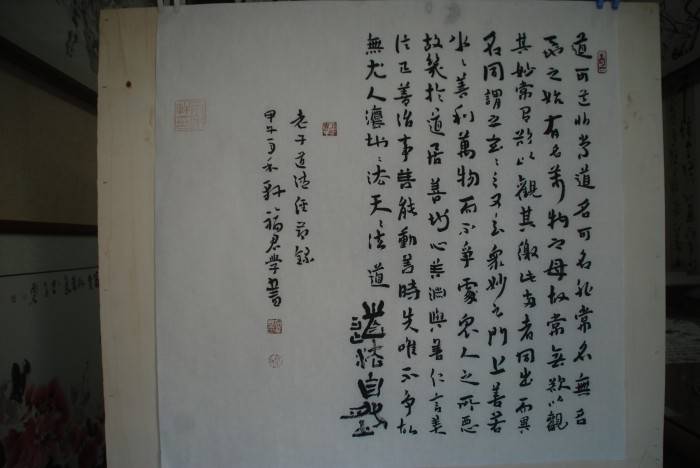 道可道非常道名可名非常名無名
之始有名萬物之母故常無欲以觀
其妙常有欲以觀其徼此兩者同出而異
名同謂之玄〻之又玄眾妙之門上善若
水〻善利萬物而不爭處眾人之所惡
故幾於道居善地心善淵與善仁言善
信正善治事善能動善時夫唯不爭故
無尤人法地〻法天〻法道
道法自然
老子道德經節錄
甲午百禾軒福君學書